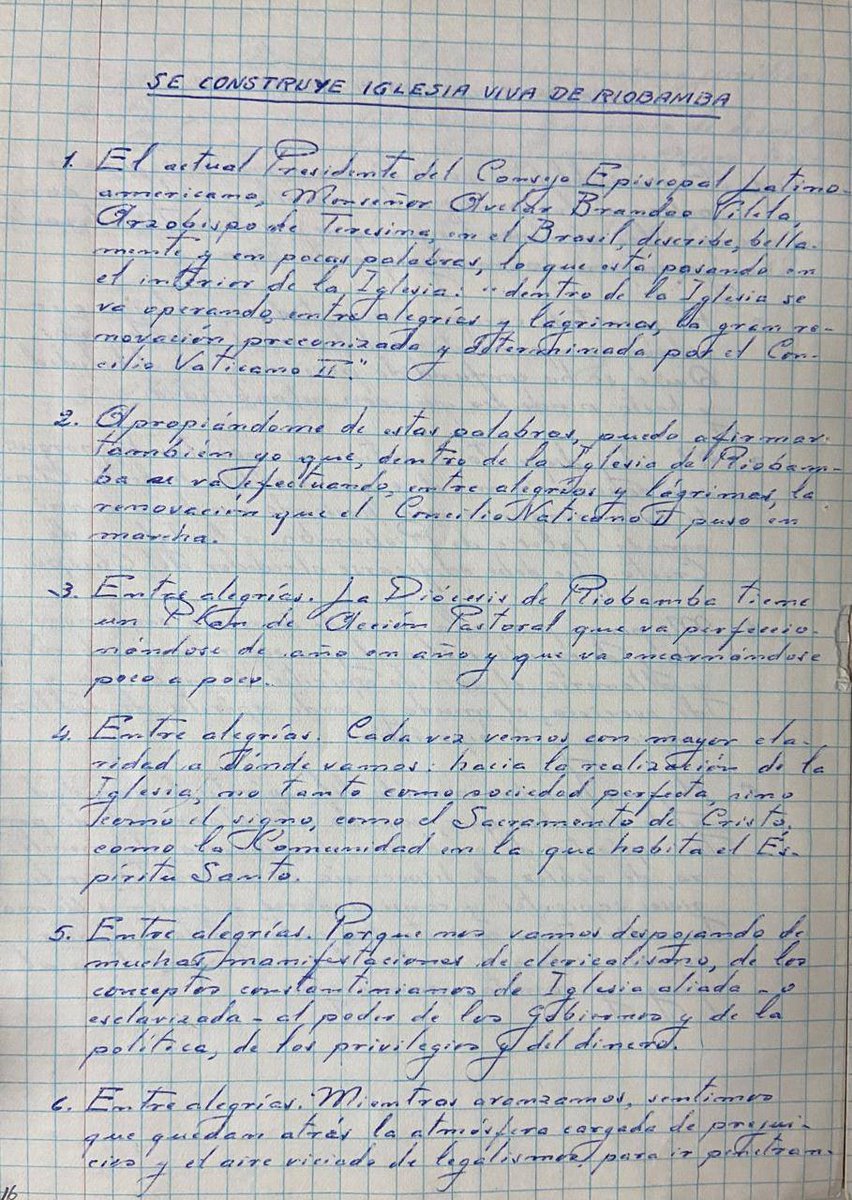 SE CONSTRUYE IGLESIA VIVA DE RIOBAMBA
1. El actual Presidente del Consejo Episcopal Latino-
americano, Monseñor Avelar Brandao Vilela,
Arzobispo de Teresina, en el Brasil, describe, bella-
mente y en pocas palabras, lo que está pasando en
el interior de la Iglesia: "dentro de la Iglesia se
va operando, entre alegrías y lágrimas, la gran re-
novación, preconizada y determinada por el Con-
cilio Vaticano II."
2. Apropiándome de estas palabras, puedo afirmar
también yo que, dentro de la Iglesia de Riobam-
ba se va efectuando, entre alegrías y lágrimas, la
renovación que el Concilio Vaticano II puso en
marcha.
3. Entre alegrías. La Diócesis de Riobamba tiene
un Plan de Acción Pastoral que va perfeccio-
nándose de año en año y que va encarnándose
poco a poco.
4. Entre alegrías. Cada vez vemos con mayor cla-
ridad a dónde vamos: hacia la realización de la
Iglesia, no tanto como sociedad perfecta, sino
como el signo, como el Sacramento de Cristo,
como la Comunidad en la que habita el Es-
píritu Santo.
5. Entre alegrías. Porque nos vamos despojando de
muchas manifestaciones de clericalismo, de los
conceptos constantinianos de Iglesia aliada - o
esclavizada - al poder de los gobiernos y de la
política, de los privilegios y del dinero.
6. Entre alegrías. Mientras avanzamos, sentimos
que quedan atrás la atmósfera cargada de prejui-
cios y el aire viciado de legalismos, para ir penetran-
16